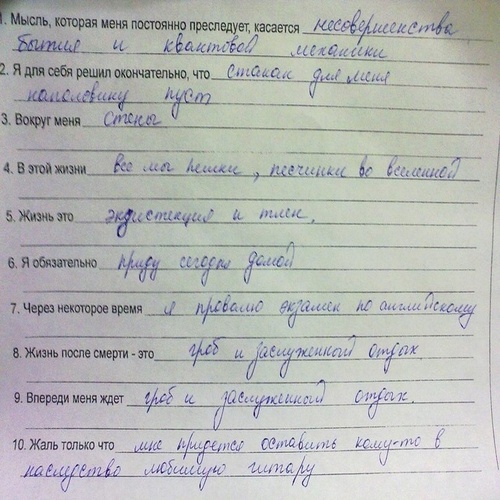 1. Мысль, которая меня постоянно преследует, касается несовершенства
бытия и квантовой механики
2. Я для себя решил окончательно, что стакан для меня
наполовину пуст
3. Вокруг меня стены
4. В этой жизни все мы пешки, песчинки во вселенной
5. Жизнь это экзистенция и тлен.
6. Я обязательно приду сегодня домой
7. Через некоторое время я провалю экзамен по английскому
8. Жизнь после смерти - это гроб и заслуженный отдых
9. Впереди меня ждет гроб и заслуженный отдых.
10. Жаль только что мне придется оставить кому-то в
наследство любимую гитару